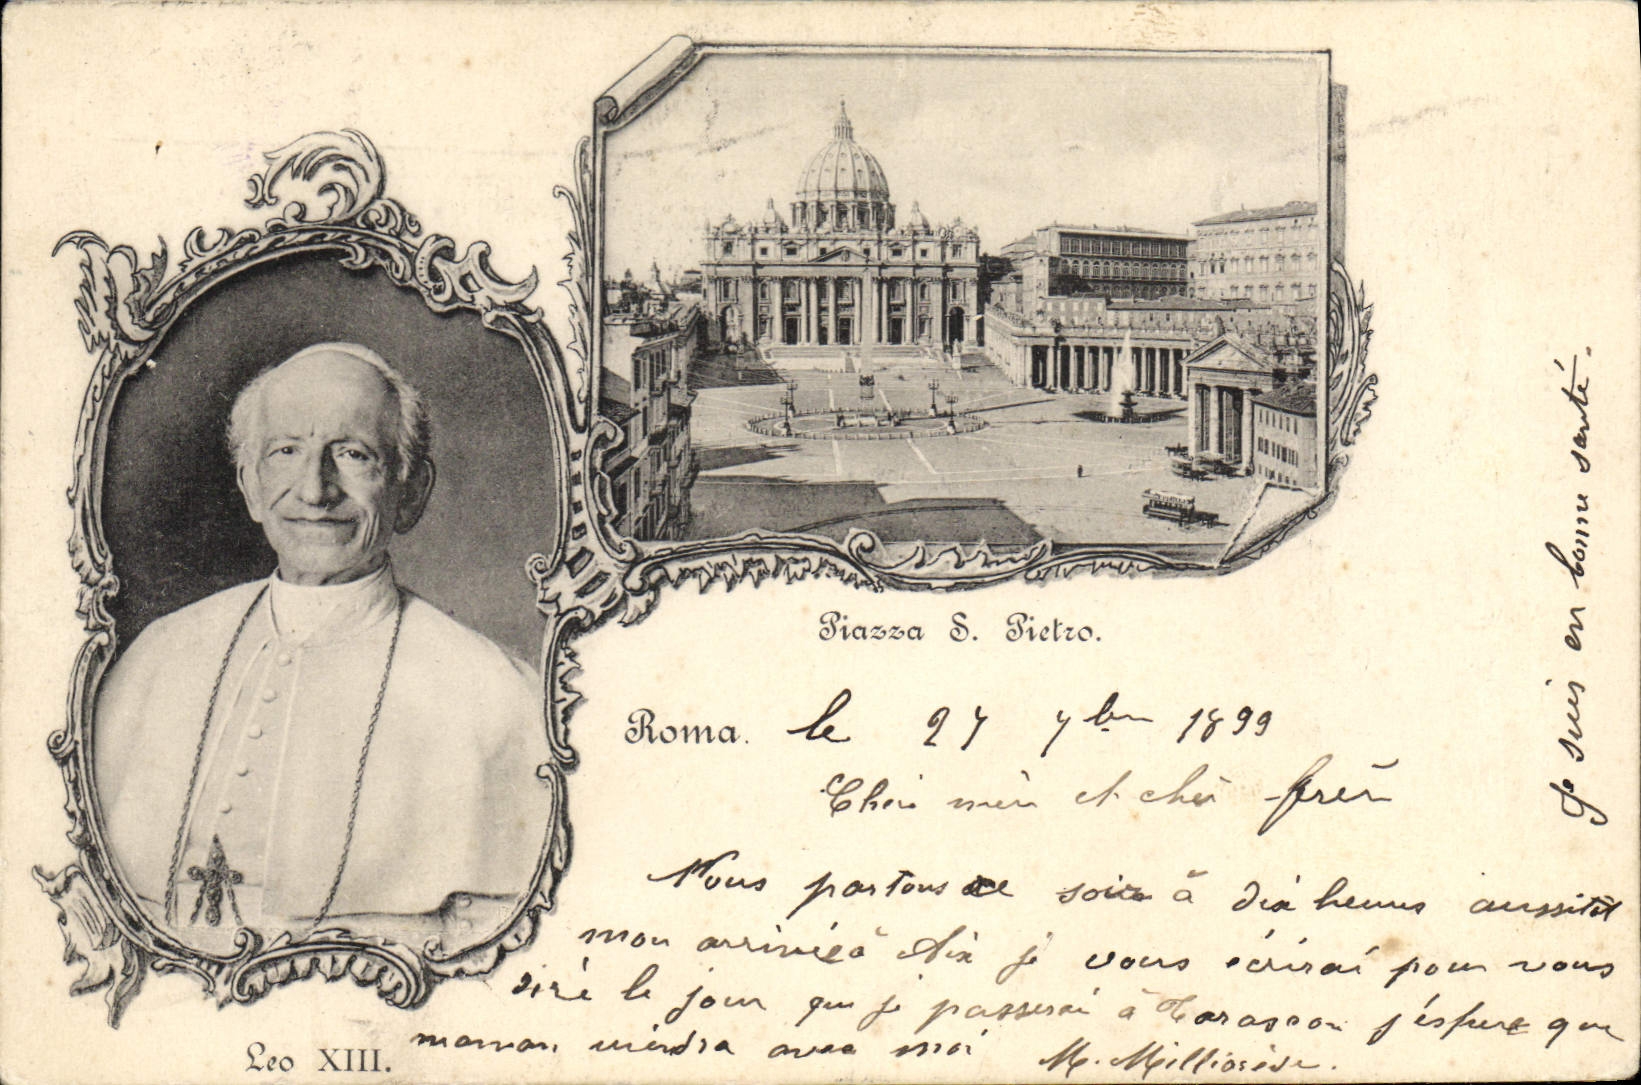 Piazza S. Pietro.
Roma. le 27 7bre 1899
Cher mère et cher frère
Nous partons ce soir à dix heures aussitôt
mon arrivée à Aix je vous écrirai pour vous
diré le jour que je passerai à Tarascon j'éspere que
maman viendra avec moi
M.
Leo XIII.
Je suis en bonne santé.